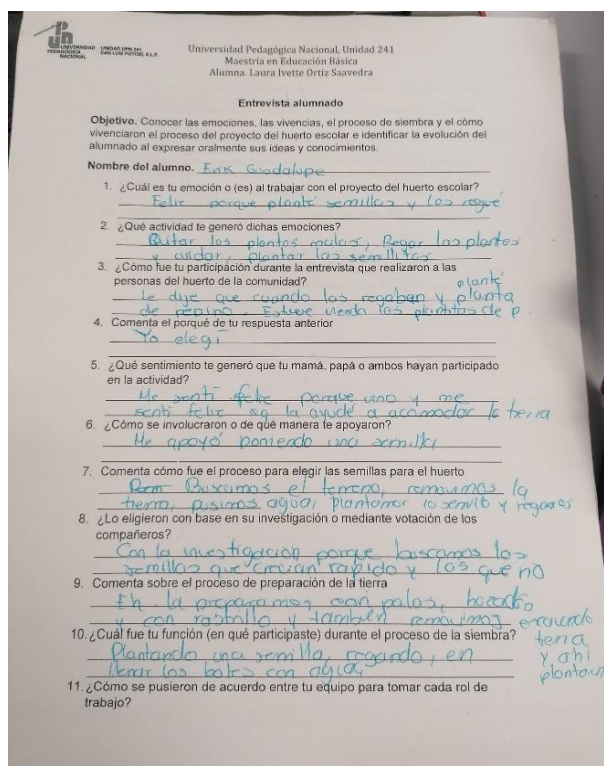 UNIVERSIDAD
PEDAGÓGICA
NACIONAL
UNIDAD UPN 241
SAN LUIS POTOSÍ, S.L.P.
Universidad Pedagógica Nacional, Unidad 241
Maestría en Educación Básica
Alumna. Laura Ivette Ortiz Saavedra
Entrevista alumnado
Objetivo. Conocer las emociones, las vivencias, el proceso de siembra y el cómo
vivenciaron el proceso del proyecto del huerto escolar e identificar la evolución del
alumnado al expresar oralmente sus ideas y conocimientos.
Nombre del alumno. Erik Guadalupe
1. ¿Cuál es tu emoción o (es) al trabajar con el proyecto del huerto escolar?
Feliz porque planté semillas y las regué
2. ¿Qué actividad te generó dichas emociones?
Quitar las plantas malas, Regar las plantas
y cuidar, plantar las semillitas
3. ¿Cómo fue tu participación durante la entrevista que realizaron a las
personas del huerto de la comunidad?
planté
le dije que cuando las regaban y planta
de pepino. Estuve viendo las plantitas de p
4. Comenta el porqué de tu respuesta anterior
Yo elegí
5. ¿Qué sentimiento te generó que tu mamá, papá o ambos hayan participado
en la actividad?
Me sentí feliz porque vino y me
sentí feliz la ayudé a acomodar la tierra
6. ¿Cómo se involucraron o de qué manera te apoyaron?
Me apoyó poniendo una semilla
7. Comenta cómo fue el proceso para elegir las semillas para el huerto
Buscamos el terreno, removimos la
tierra, pusimos agua, plantamos la semilla y regamos
8. ¿Lo eligieron con base en su investigación o mediante votación de los
compañeros?
Con la investigación porque buscamos las
semillas que crecían rápido y las que no
9. Comenta sobre el proceso de preparación de la tierra
Eh. la preparamos con palos,
y con rastrillo y también removimos
tierra
y ahí
10. ¿Cuál fue tu función (en qué participaste) durante el proceso de la siembra?
Plantando una semilla, regando, en
llenar los botes con agua,
11. ¿Cómo se pusieron de acuerdo entre tu equipo para tomar cada rol de
trabajo?